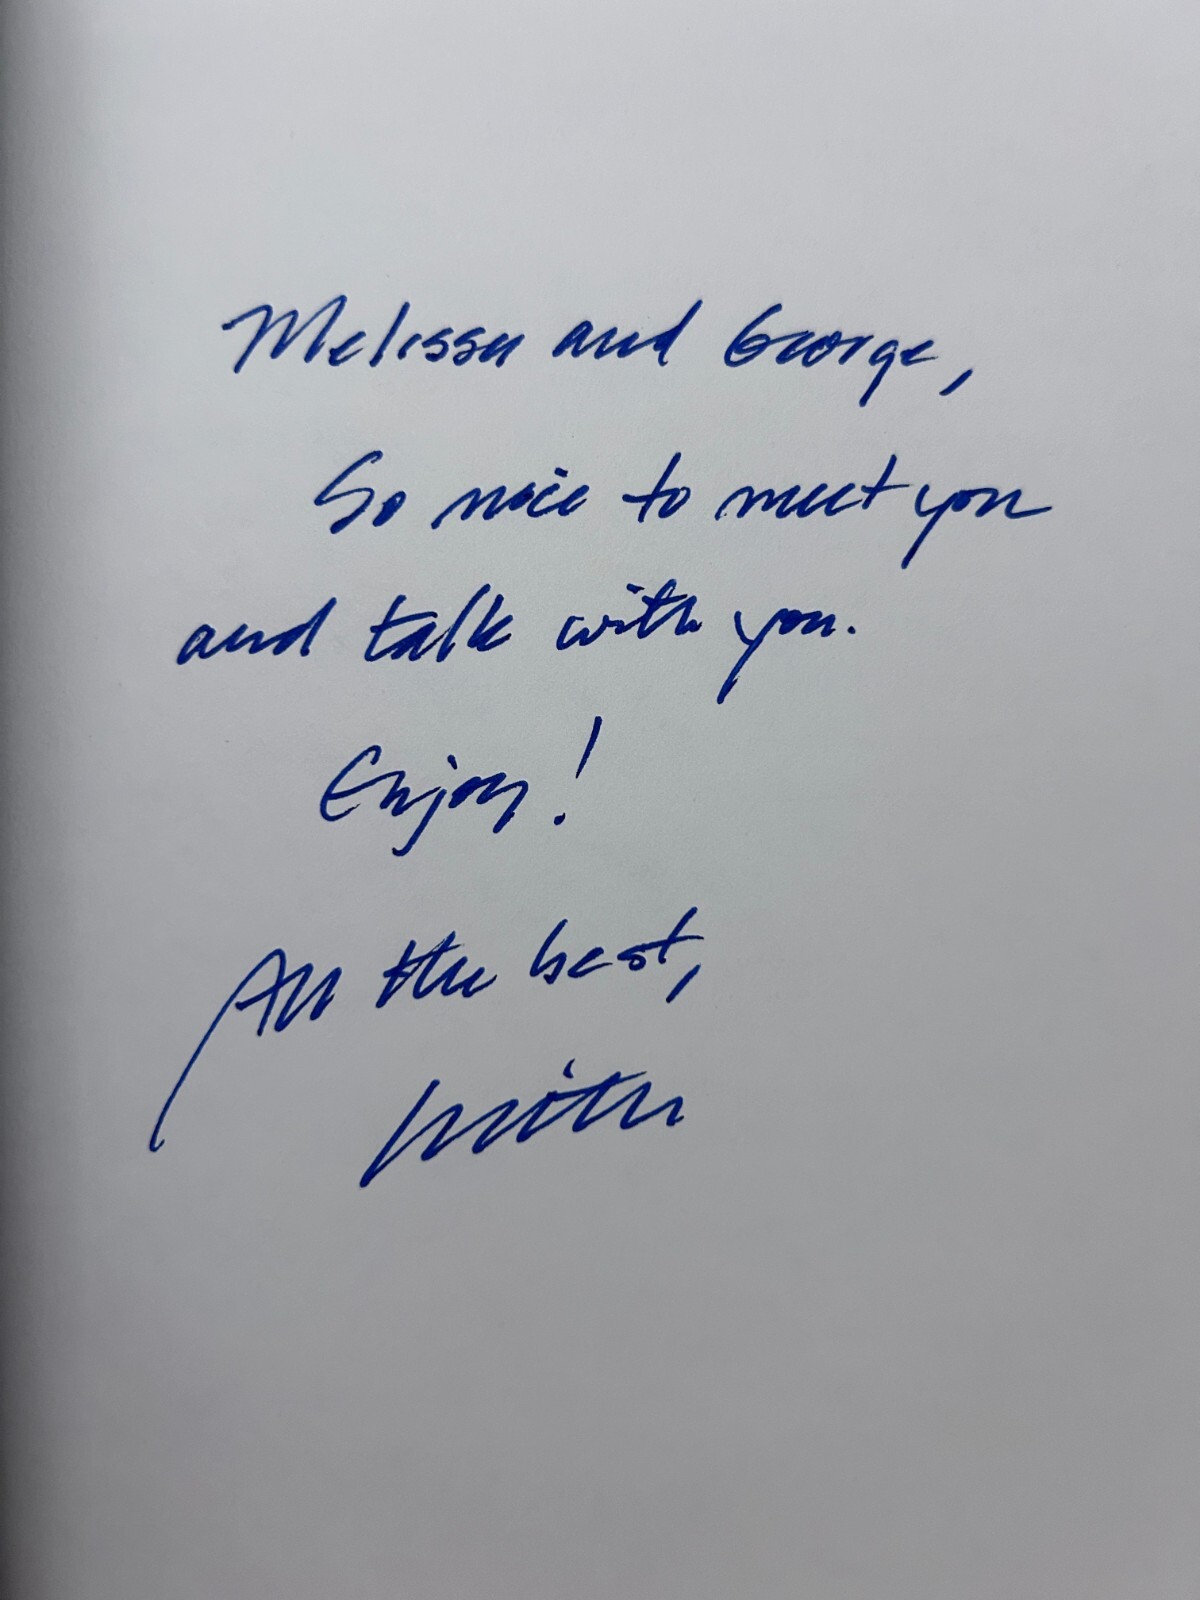 Melissa and George,
So nice to meet you
and talk with you.
Enjoy!
All the best,